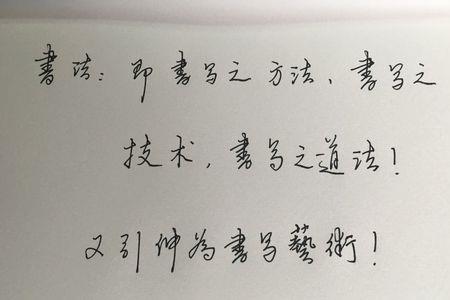 書法：即書写之方法、書写之
技术，書写之道法！
又引伸為書写藝術！